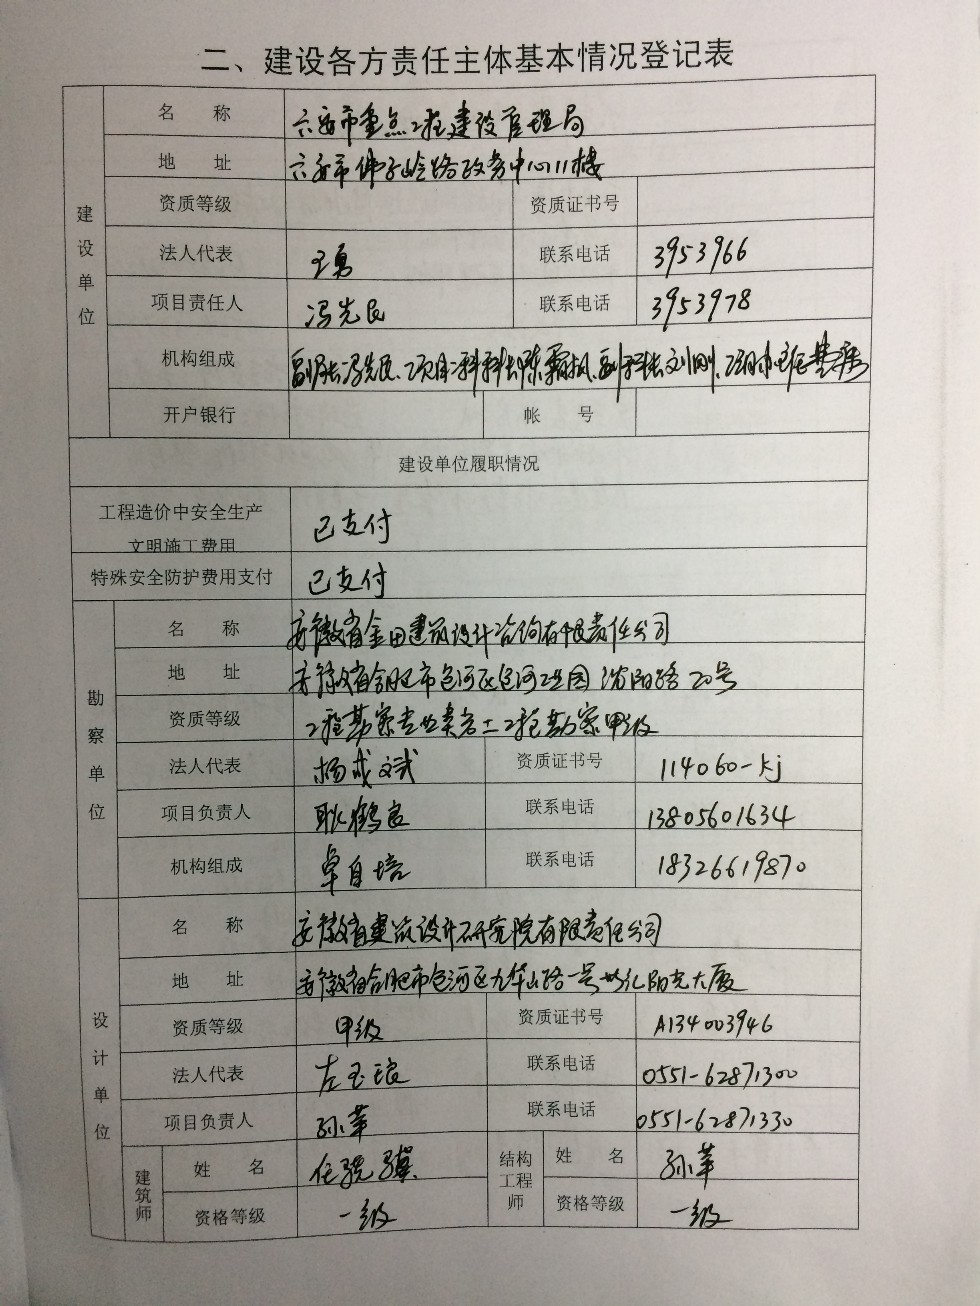 二、建设各方责任主体基本情况登记表
建设单位
名 称 六安市重点工程建设管理局
地 址 六安市佛子岭路政务中心11楼
资质等级 资质证书号
法人代表 王勇 联系电话 3953966
项目责任人 冯先民 联系电话 3953978
机构组成 副局长冯先民、项目科科长陈 副科长刘刚、
开户银行 帐 号
建设单位履职情况
工程造价中安全生产
文明施工费用 已支付
特殊安全防护费用支付 已支付
勘察单位
名 称 安徽省金田建筑设计咨询有限责任公司
地 址 安徽省合肥市包河区包河工业园沈阳路20号
资质等级 工程勘察专业类岩土工程勘察甲级
法人代表 杨成斌 资质证书号 114060-kj
项目负责人 耿鹤良 联系电话 13805601634
机构组成 卓自培 联系电话 18326619870
设计单位
名 称 安徽省建筑设计研究院有限责任公司
地 址 安徽省合肥市包河区九华山路一号 阳光大厦
资质等级 甲级 资质证书号 A134003946
法人代表 左玉琅 联系电话 0551-62871300
项目负责人 孙苹 联系电话 0551-62871330
建筑师 姓 名 任骁骥 结构工程师 姓 名 孙苹
资格等级 一级 资格等级 一级